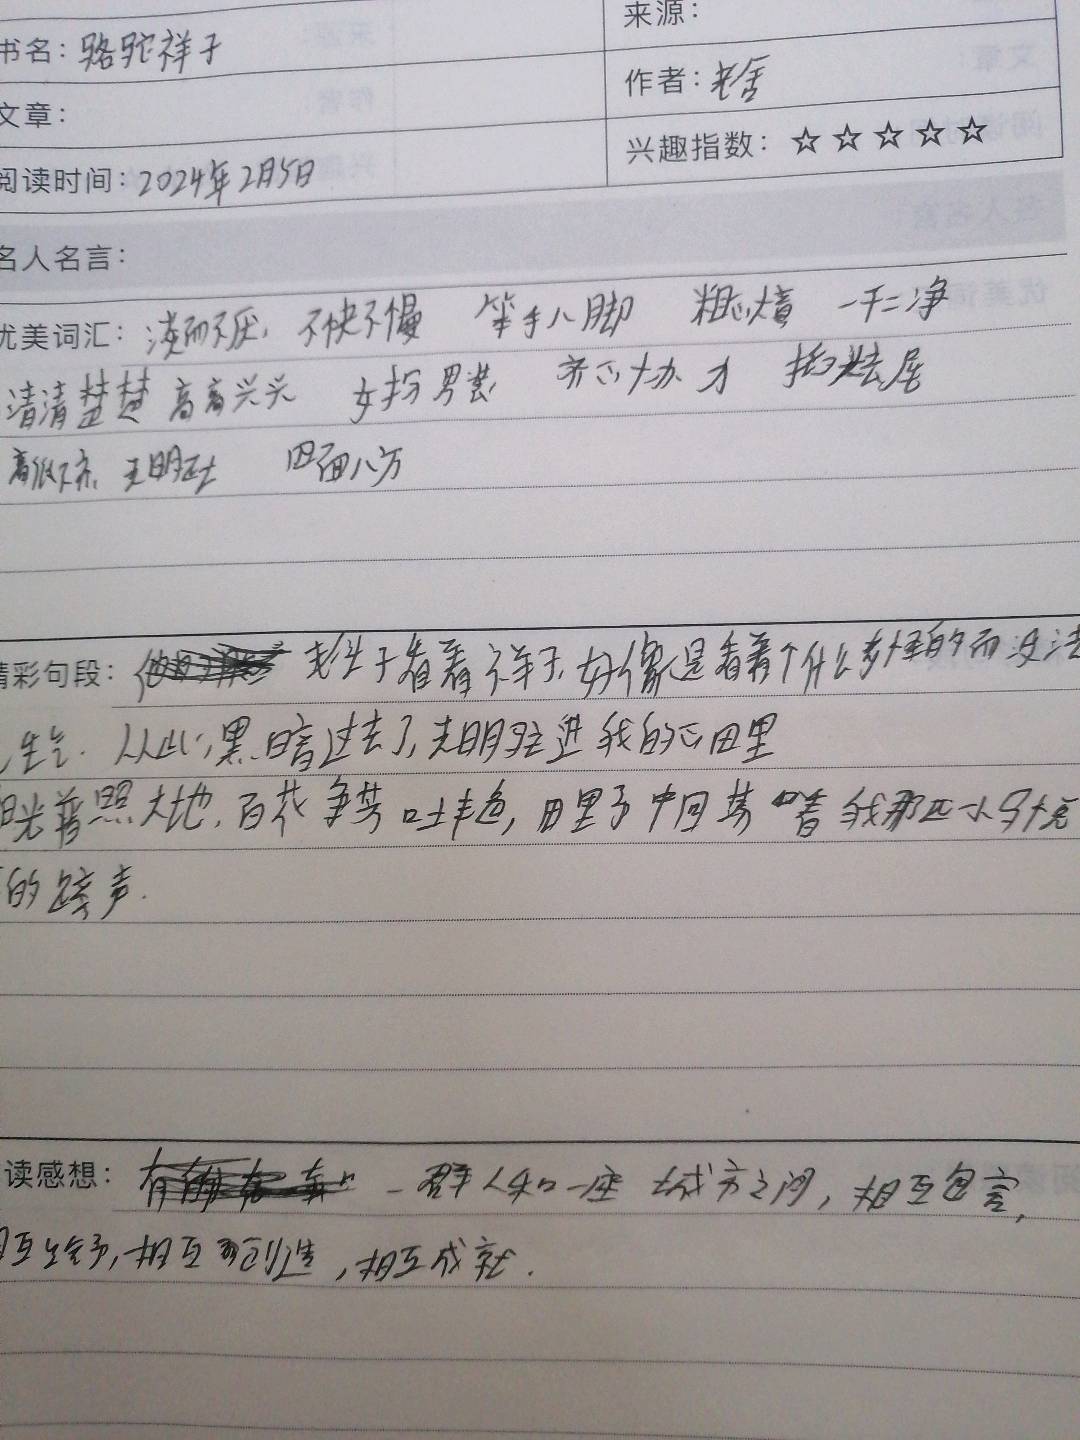 来源：
书名：骆驼祥子
作者：老舍
文章：
兴趣指数：☆☆☆☆☆
阅读时间：2024年2月5日
名人名言：
优美词汇：渎而不厌，不快不慢 笨手八脚 粗心大意 一干二净
清清楚楚 高高兴兴 女扮男装 齐心办 才
高低不齐 光明正大 四面八方
精彩句段： 老头子看着祥子，好像是看着个什么奇怪的而没法
儿生气. 从此，黑暗过去了，光明驻进我的心田里
阳光普照大地，百花争芳吐艳，田里 着我那匹小马
的蹄声.
读感想： 一群人和一座城市之间，相互包容，
相互给予，相互创造，相互成就.